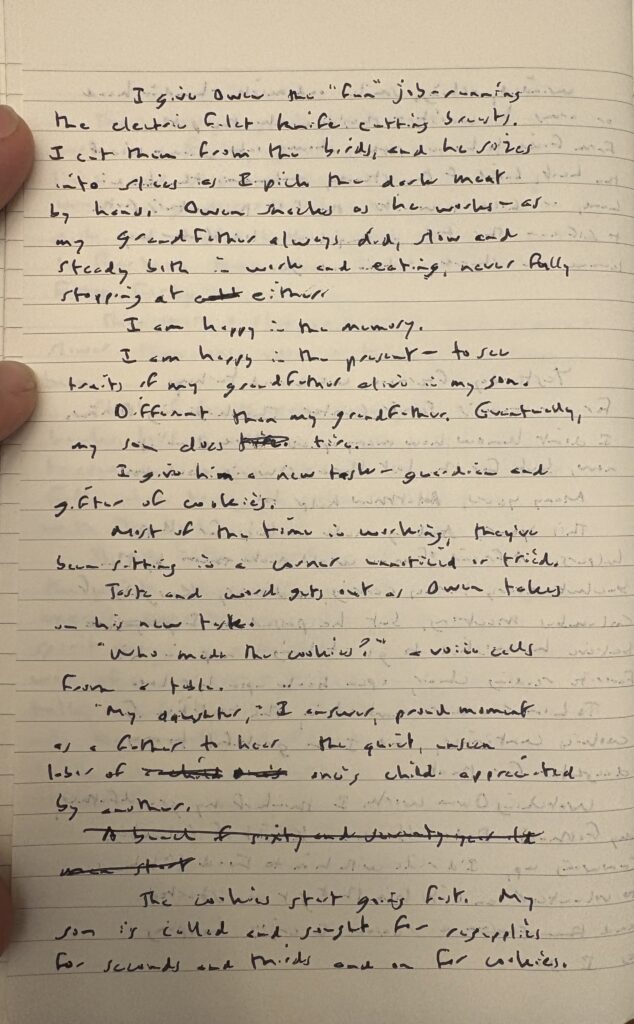 I give Owen the "fun" job - running
the electric filet knife cutting breasts.
I cut them from the birds, and he sizes
into slices as I pick the dark meat
by hand. Owen snacks as he works - as
my grandfather always did, slow and
steady both in work and eating, never fully
stopping at either
I am happy in the memory.
I am happy in the present - to see
traits of my grandfather alive in my son.
Different than my grandfather. Eventually,
my son does tire.
I give him a new task - guardian and
gifter of cookies.
Most of the time is working, they've
been sitting in a corner unnoticed or tried.
Taste and word gets out as Owen takes
on his new task.
"Who made the cookies?" a voice calls
from a table.
"My daughter," I answer, proud moment
as a father to hear the quiet, unseen
labor of one's child appreciated
by another.
A bunch of sixty and seventy year old
men start
The cookies start going fast. My
son is called and sought for resupplies
for seconds and thirds and on for cookies.